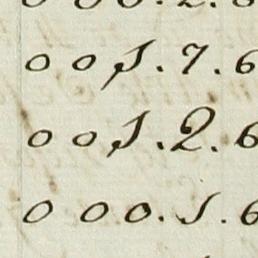 0 0 1 . 7 . 6
0 0 1 . 2 . 6
0 0 0 . 1 . 6